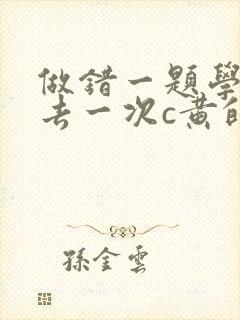 做錯一題學
去一次c黃自
孫金雲